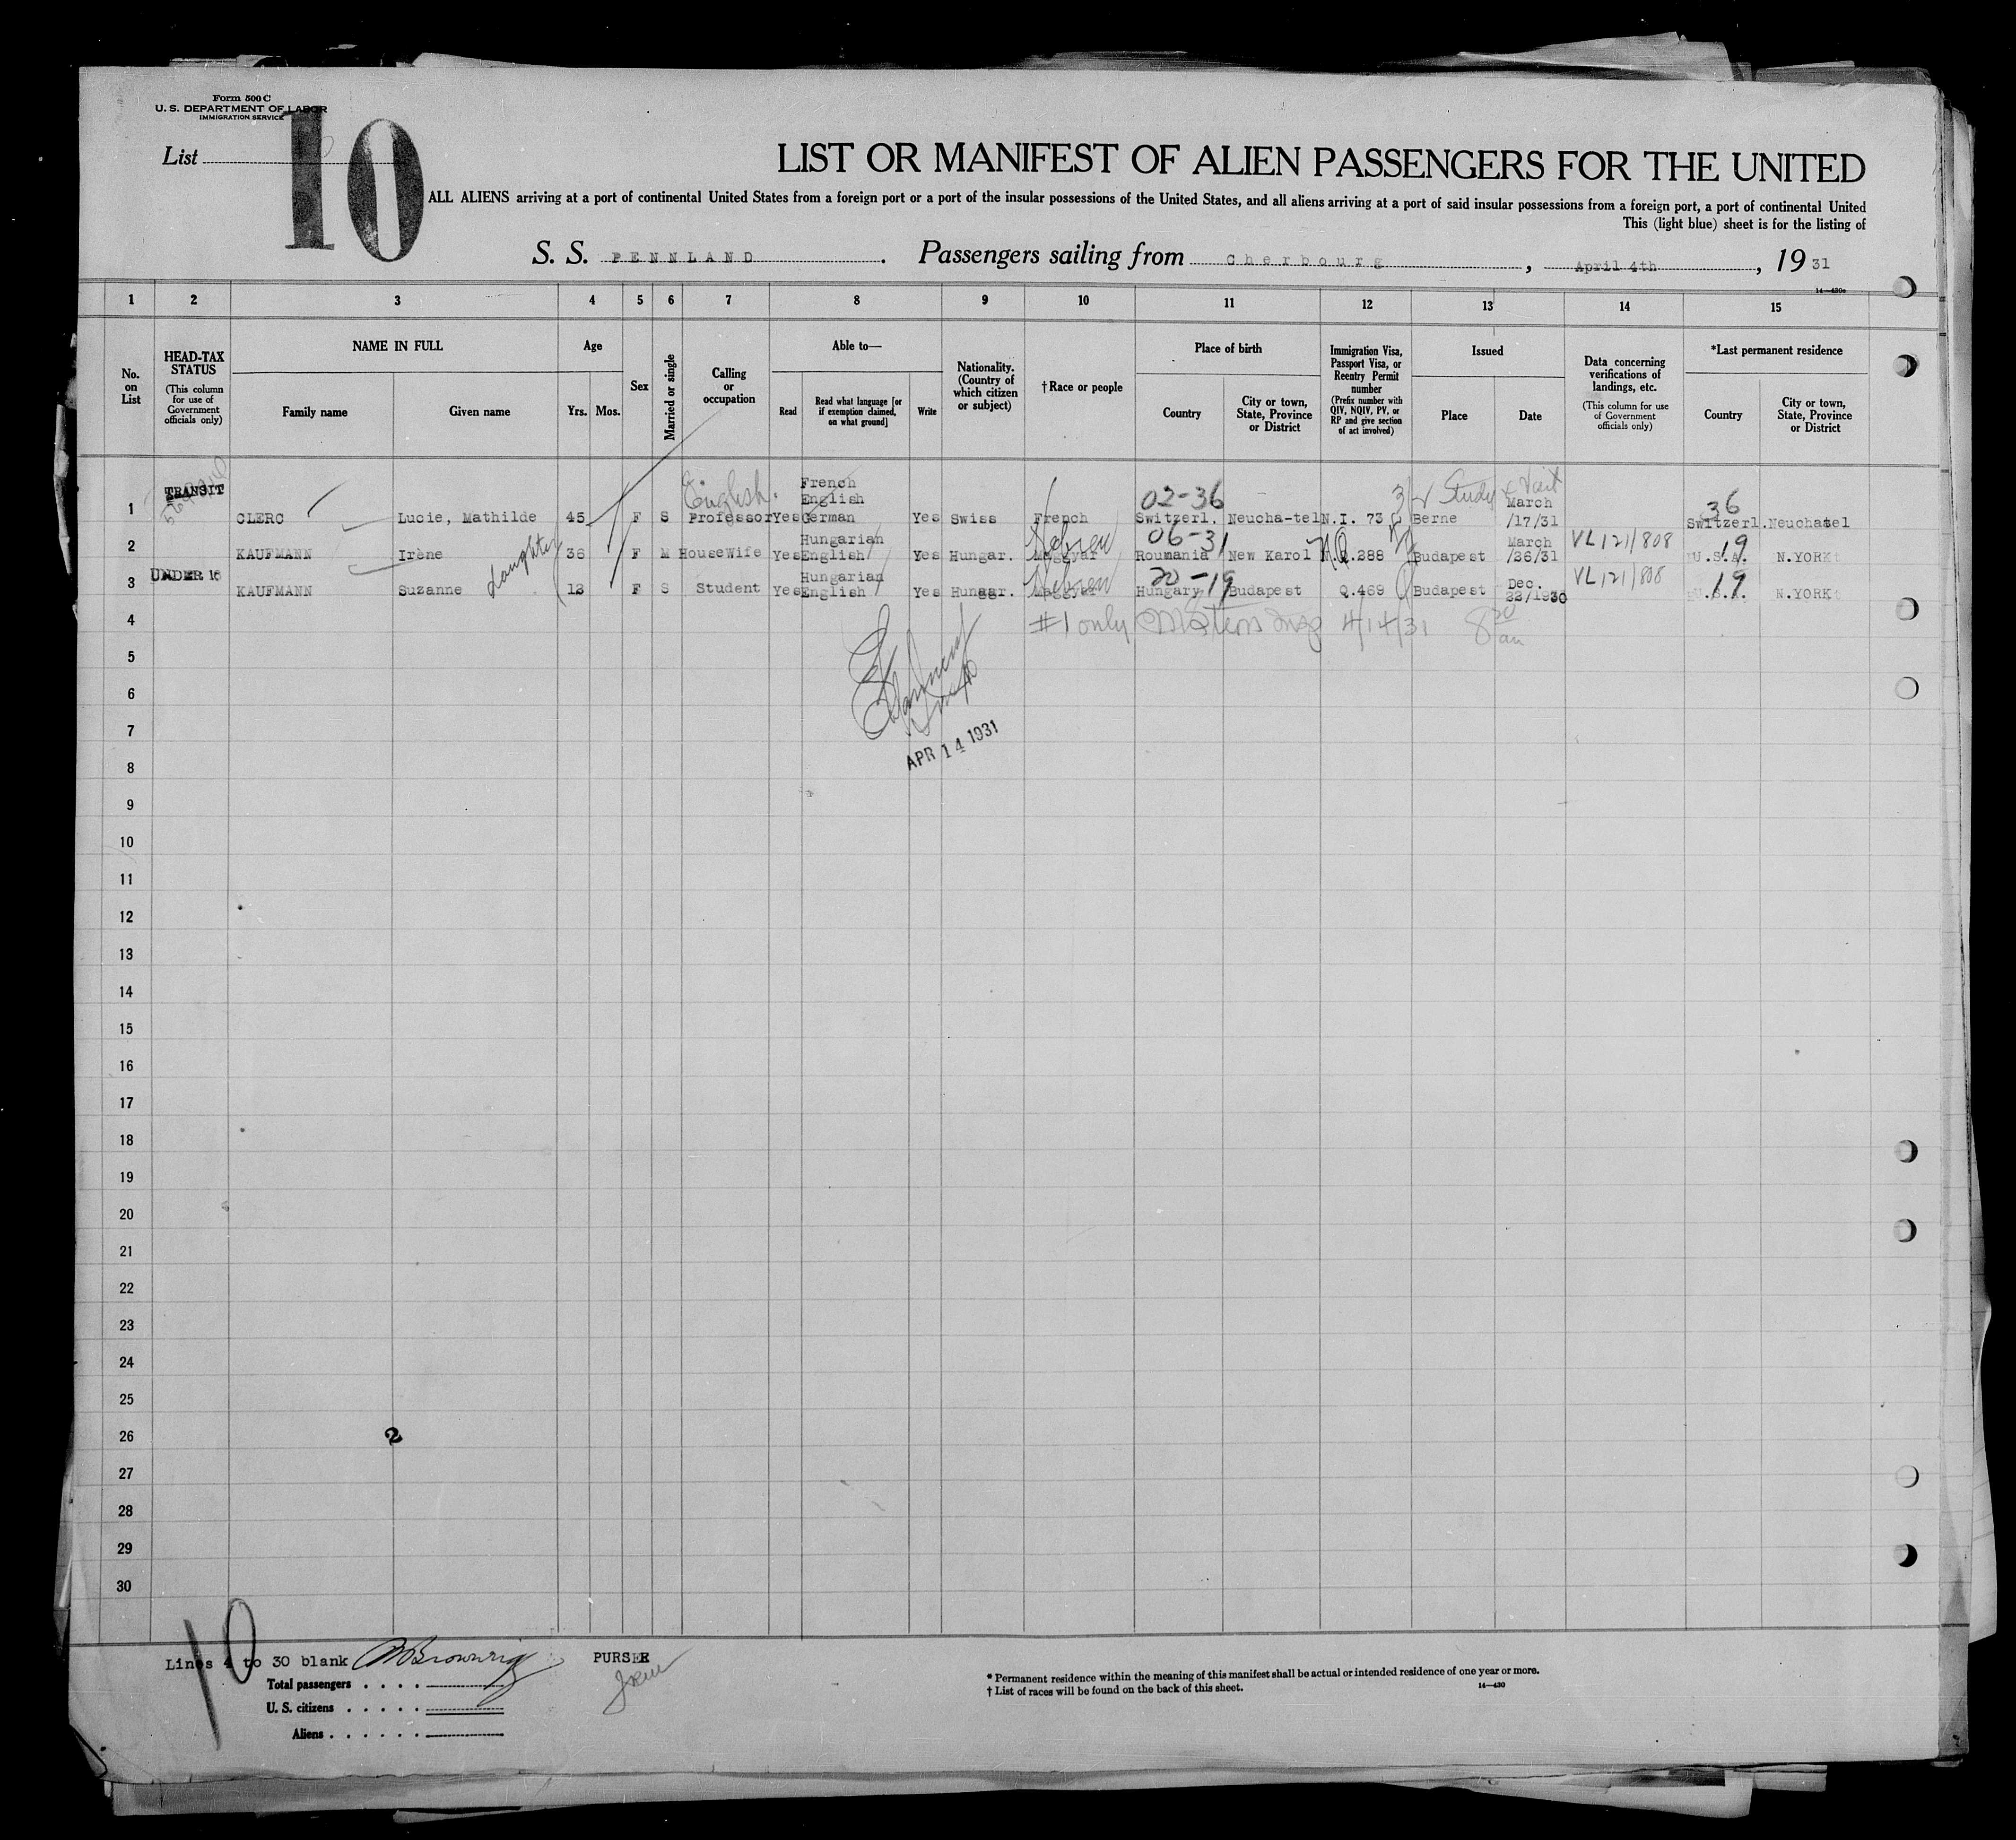 Form 500 C
U. S. DEPARTMENT OF LABOR
IMMIGRATION SERVICE
List
10
LIST OR MANIFEST OF ALIEN PASSENGERS FOR THE UNITED
ALL ALIENS arriving at a port of continental United States from a foreign port or a port of the insular possessions of the United States, and all aliens arriving at a port of said insular possessions from a foreign port, a port of continental United
This (light blue) sheet is for the listing of
S. S. PENNLAND. Passengers sailing from Cherbourg, April 4th, 19 31
14—430c
1 2 3 4 5 6 7 8 9 10 11 12 13 14 15
No. on List
HEAD-TAX STATUS (This column for use of Government officials only)
NAME IN FULL Family name Given name
Age Yrs. Mos.
Sex
Married or single
Calling or occupation
Able to— Read Read what language [or if exemption claimed, on what ground] Write
Nationality. (Country of which citizen or subject)
† Race or people
Place of birth Country City or town, State, Province or District
Immigration Visa, Passport Visa, or Reentry Permit number (Prefix number with QIV, NQIV, PV, or RP and give section of act involved)
Issued Place Date
Data concerning verifications of landings, etc. (This column for use of Government officials only)
*Last permanent residence Country City or town, State, Province or District
TRANSIT English. French English 02-36 3/ Study & Visit March 36
1 CLERC Lucie, Mathilde 45 F S Professor Yes German Yes Swiss French Switzerl. Neucha-tel N.I. 73 Berne /17/31 Switzerl. Neuchatel
Hungarian Hebrew 06-31 March VL 121/808 19
2 KAUFMANN Irène 36 F M HouseWife Yes English Yes Hungar. Magyar Roumania New Karol N.Q.288 Budapest /26/31 U.S.A. N.YORK
UNDER 16 daughter Hungarian Hebrew 20-19 Dec. VL 121/808 19
3 KAUFMANN Suzanne 13 F S Student Yes English Yes Hungar. Magyar Hungary Budapest Q.469 Budapest 22/1930 U.S.A. N.YORK
4 #1 only 4/14/31 8 30 am
5
6
7
APR 14 1931
8
9
10
11
12
13
14
15
16
17
18
19
20
21
22
23
24
25
26
2
27
28
29
30
10
Lines 4 to 30 blank PURSER
Total passengers
U. S. citizens
Aliens
* Permanent residence within the meaning of this manifest shall be actual or intended residence of one year or more.
† List of races will be found on the back of this sheet.
14—430